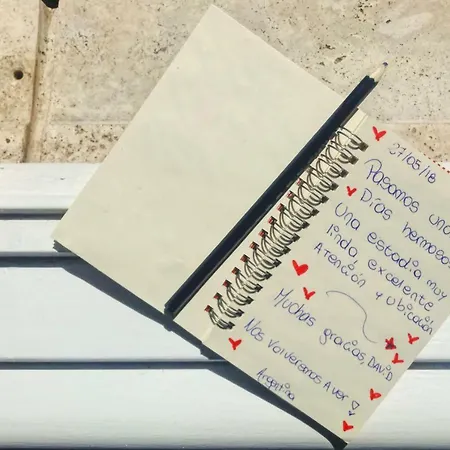 27/05/18
Pasamos uno
Días hermoso
Una estadia muy
linda, excelente
Atención y ubicación
Muchas gracias, DAVID
Nos volveremos A ver!
Argentina